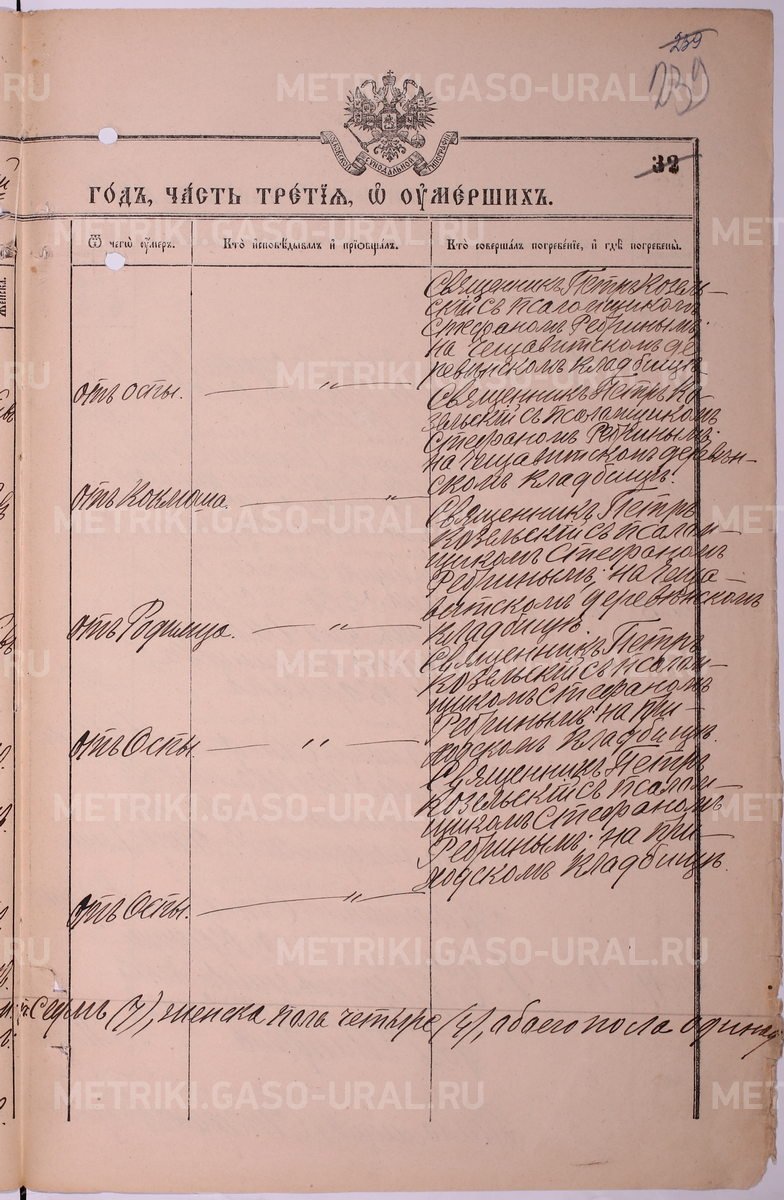 239
239
МОСКОВСКОЙ СѴНОДАЛЬНОЙ ТИПОГРАФІИ
32
ГО́ДЪ, ЧА́СТЬ ТРЕ́ТІЯ, Ѡ ОУМЕ́РШИХЪ.
Ѿ чегѡ̀ ᲂу҆́меръ.
Кто̀ и҆сповѣ́дывалъ и҆ прїѡбща́лъ.
Кто̀ соверша́лъ погребе́нїе, и҆ гдѣ̀ погребены̀.
Священникъ Петръ Козель-
скій съ псаломщикомъ
Стефаномъ Ребринымъ.
на Чещавитскомъ де
ревенскомъ кладбищѣ
отъ оспы. — " —
Священникъ Петръ Ко-
зельскій съ псаломщикомъ
Стефаномъ Ребринымъ.
на Чещавитскомъ деревен-
скомъ кладбищѣ.
отъ Коклюша. — " —
Священникъ Петръ
Козельскій съ псалом-
щикомъ Стефаномъ
Ребринымъ; на Чеща-
витскомъ деревенскомъ
кладбищѣ
отъ Родимца. — " —
Священникъ Петръ
Козельскій съ псалом-
щикомъ Стефаномъ
Ребринымъ на при-
ходскомъ кладбищѣ.
отъ Оспы. — " —
Священникъ Петръ
Козельскій съ псалом-
щикомъ Стефаномъ
Ребринымъ; на при-
ходскомъ кладбищѣ.
отъ Оспы. — " —
семь (7), женска пола четыре (4), абоего посла одинад
METRIKI.GASO-URAL.RU